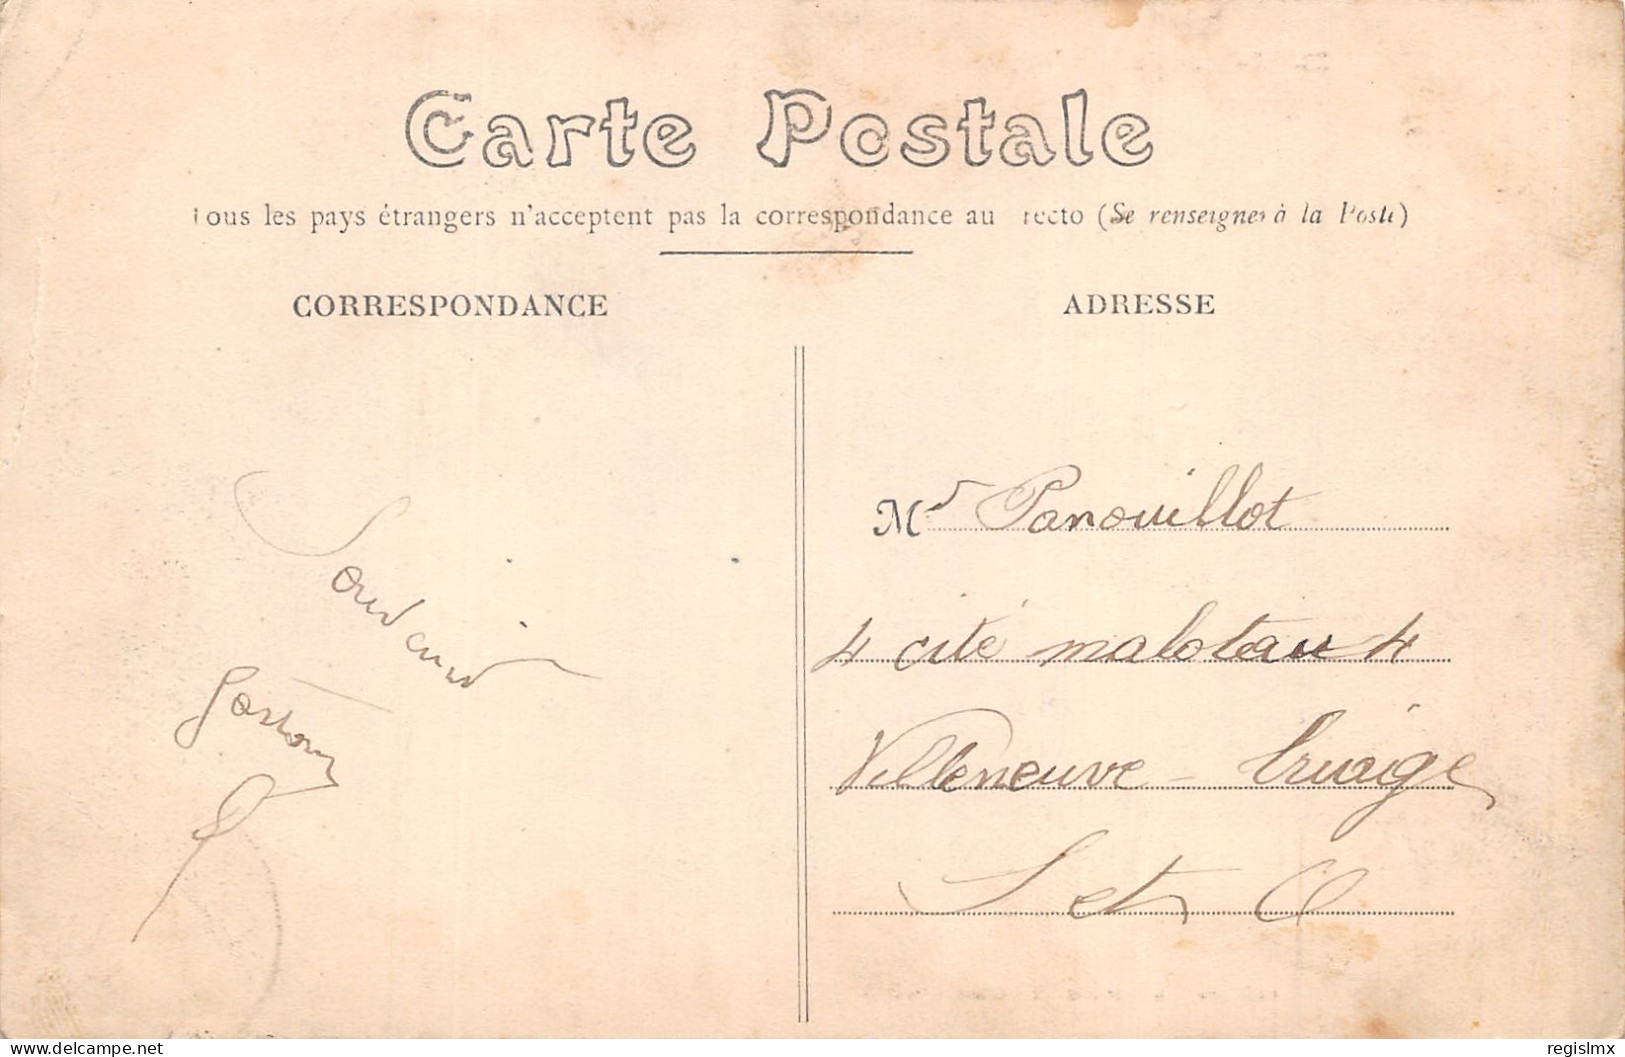 Carte Postale
Tous les pays étrangers n'acceptent pas la correspondance au recto (Se renseigner à la Poste)
CORRESPONDANCE
ADRESSE
Souvenir
Gaston
Mr Panouillot
4 cité malotau 4
Villeneuve - triaige
S et O
delcampe.net
regislmx